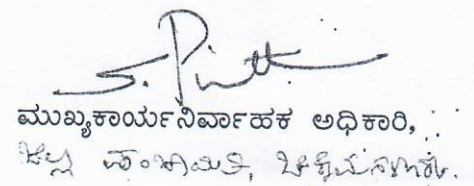 S. P
ಮುಖ್ಯಕಾರ್ಯನಿರ್ವಾಹಕ ಅಧಿಕಾರಿ,
ಜಿಲ್ಲಾ ಪಂಚಾಯಿತಿ, ಚಿಕ್ಕಮಗಳೂರು.